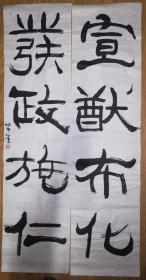 宣猷布化
發政施仁